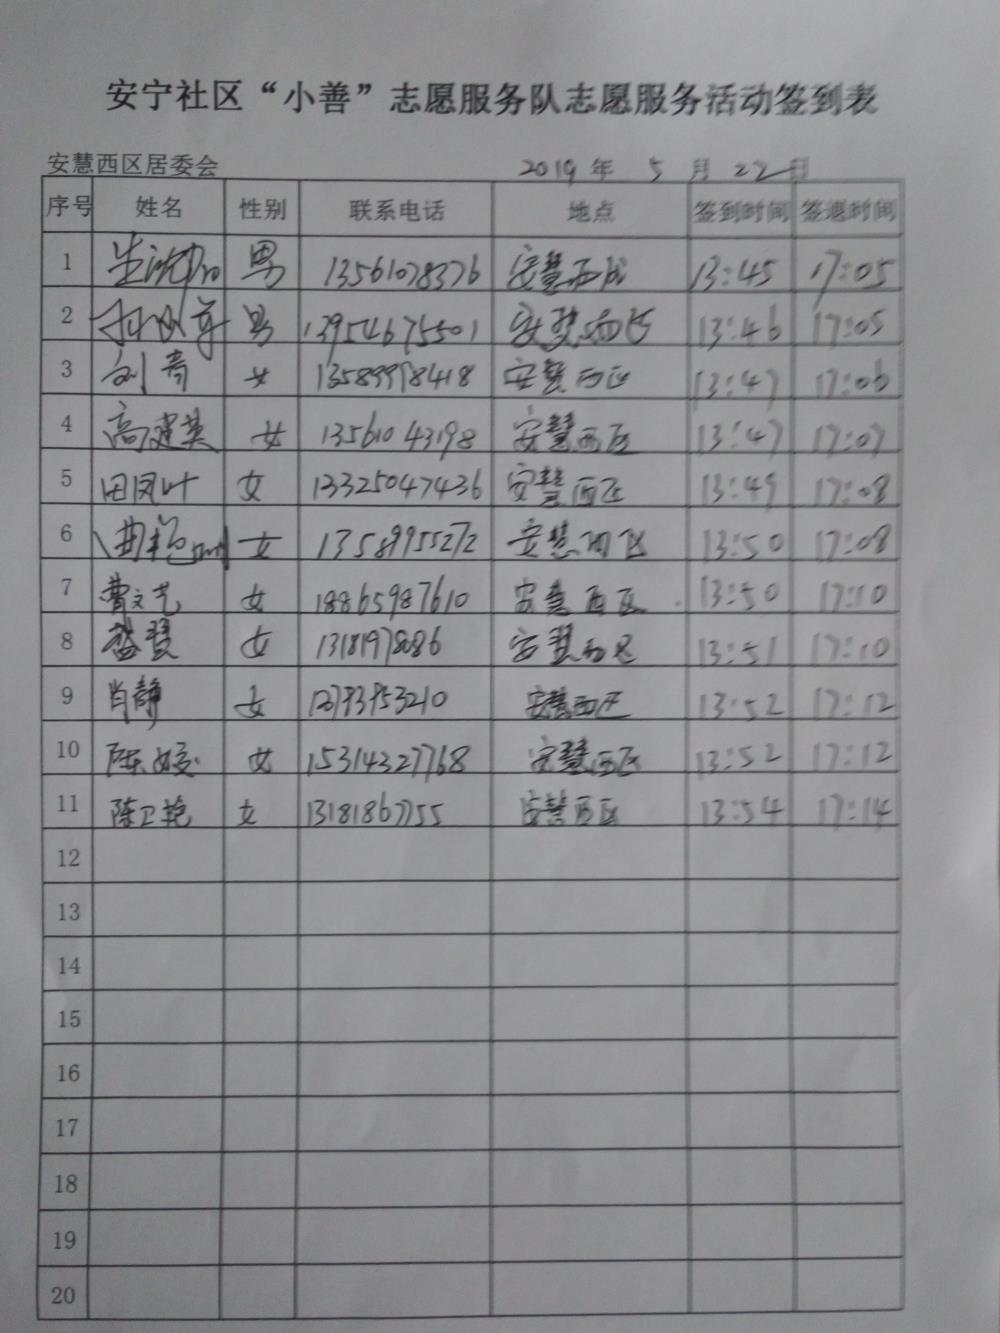 安宁社区“小善”志愿服务队志愿服务活动签到表
安慧西区居委会 2019 年 5 月 22 日
序号 姓名 性别 联系电话 地点 签到时间 签退时间
1 男 13561078376 安慧西区 13:45 17:05
2 男 13954675501 安慧西区 13:46 17:05
3 刘青 女 13589978418 安慧西区 13:47 17:06
4 高建英 女 13561043198 安慧西区 13:47 17:07
5 田凤叶 女 13325047436 安慧西区 13:49 17:08
6 曲艳 女 13589955272 安慧西区 13:50 17:08
7 曹文艺 女 18865987610 安慧西区 13:50 17:10
8 女 13181978086 安慧西区 13:51 17:10
9 肖静 女 安慧西区 13:52 17:12
10 陈姣 女 15314327768 安慧西区 13:52 17:12
11 陈卫艳 女 13181867755 安慧西区 13:54 17:14
12
13
14
15
16
17
18
19
20